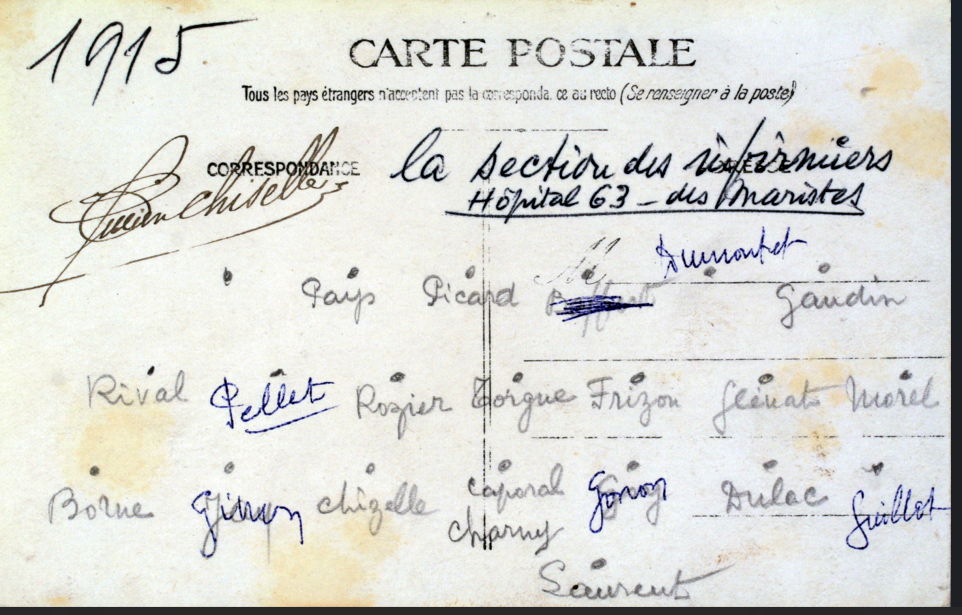 1915
CARTE POSTALE
Tous les pays étrangers n'acceptent pas la correspondance au recto (Se renseigner à la poste)
CORRESPONDANCE
ADRESSE
la section des infirmiers
Hôpital 63 - des Maristes
Lucien Chiselle
Dumontet
Pays Picard Gaudin
Rival Pellet Rozier Torgue Frizon Glénat Morel
Borne Ginon Chizelle Caporal Gonon Dulac Guillot
Charny
Laurent